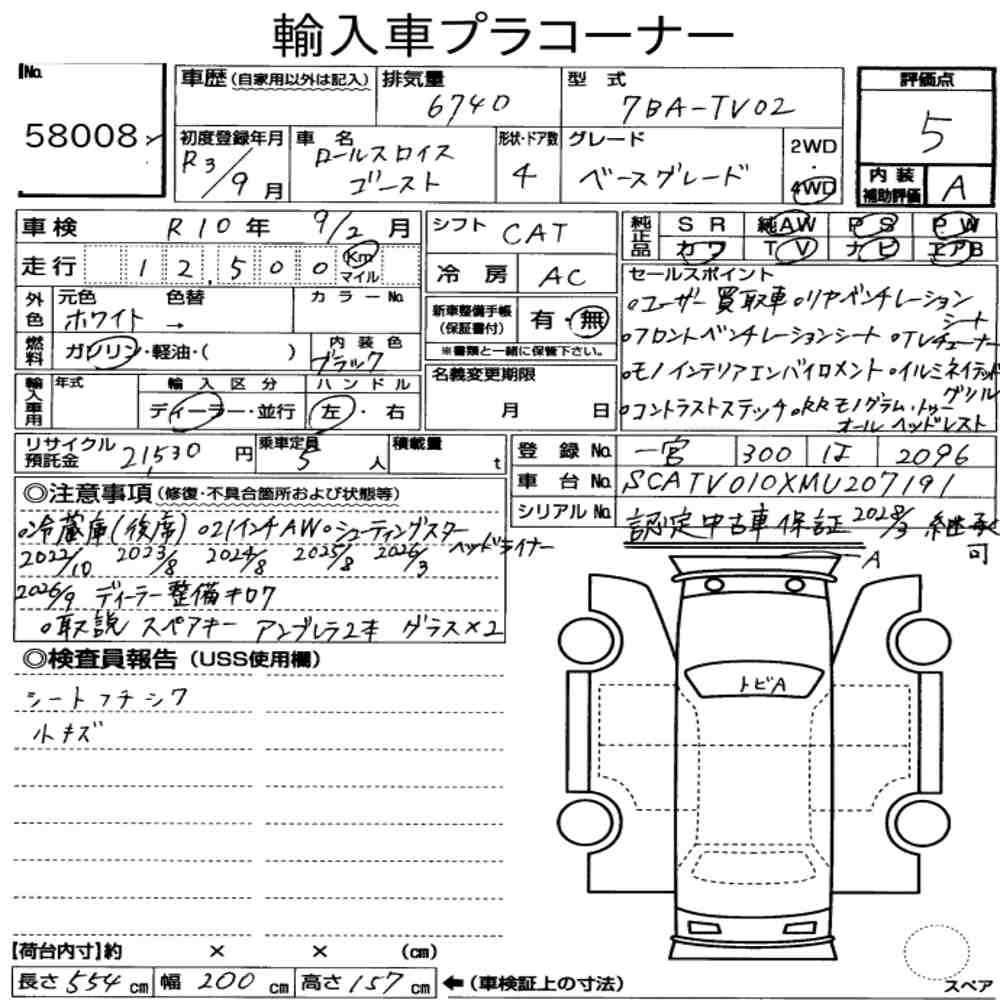 輸入車プラコーナー
No. 58008
車歴(自家用以外は記入)
排気量 6740
型式 7BA-TV02
評価点 5
初度登録年月 R3/9月
車名 ロールスロイス ゴースト
形状・ドア数 4
グレード ベースグレード
2WD・4WD
内装補助評価 A
車検 R10年 9/2月
シフト CAT
純正品 SR 純AW PS PW
カワ TV ナビ エアB
走行 12,500 Km マイル
冷房 AC
セールスポイント
外色 元色 ホワイト 色替 → カラーNo.
新車整備手帳(保証書付) 有・無
※書類と一緒に保管下さい。
○ユーザー買取車 ○リヤベンチレーションシート
○フロントベンチレーションシート ○TVチューナー
○モノインテリアエンバイロメント ○イルミネイテッドグリル
○コントラストステッチ ○RRモノグラム・トゥーオールヘッドレスト
燃料 ガソリン・軽油・( )
内装色 ブラック
輸入車用 年式 輸入区分 ディーラー・並行 ハンドル 左・右
名義変更期限 月 日
リサイクル預託金 21,530円
乗車定員 5人
積載量 t
登録No. 一宮 300 は 2096
車台No. SCATV010XMU207191
シリアルNo.
認定中古車保証 2028/3 継承可
◎注意事項(修復・不具合箇所および状態等)
○冷蔵庫(後席) ○21インチAW ○シューティングスターヘッドライナー
2022/10 2023/8 2024/8 2025/8 2026/3
2026/9 ディーラー整備キロク
○取説 スペアキー アンブレラ2本 グラス×2
◎検査員報告(USS使用欄)
シートフチシワ
小キズ
A
トビA
【荷台内寸】約 × × (cm)
長さ 554cm 幅 200cm 高さ 157cm ←(車検証上の寸法)
スペア